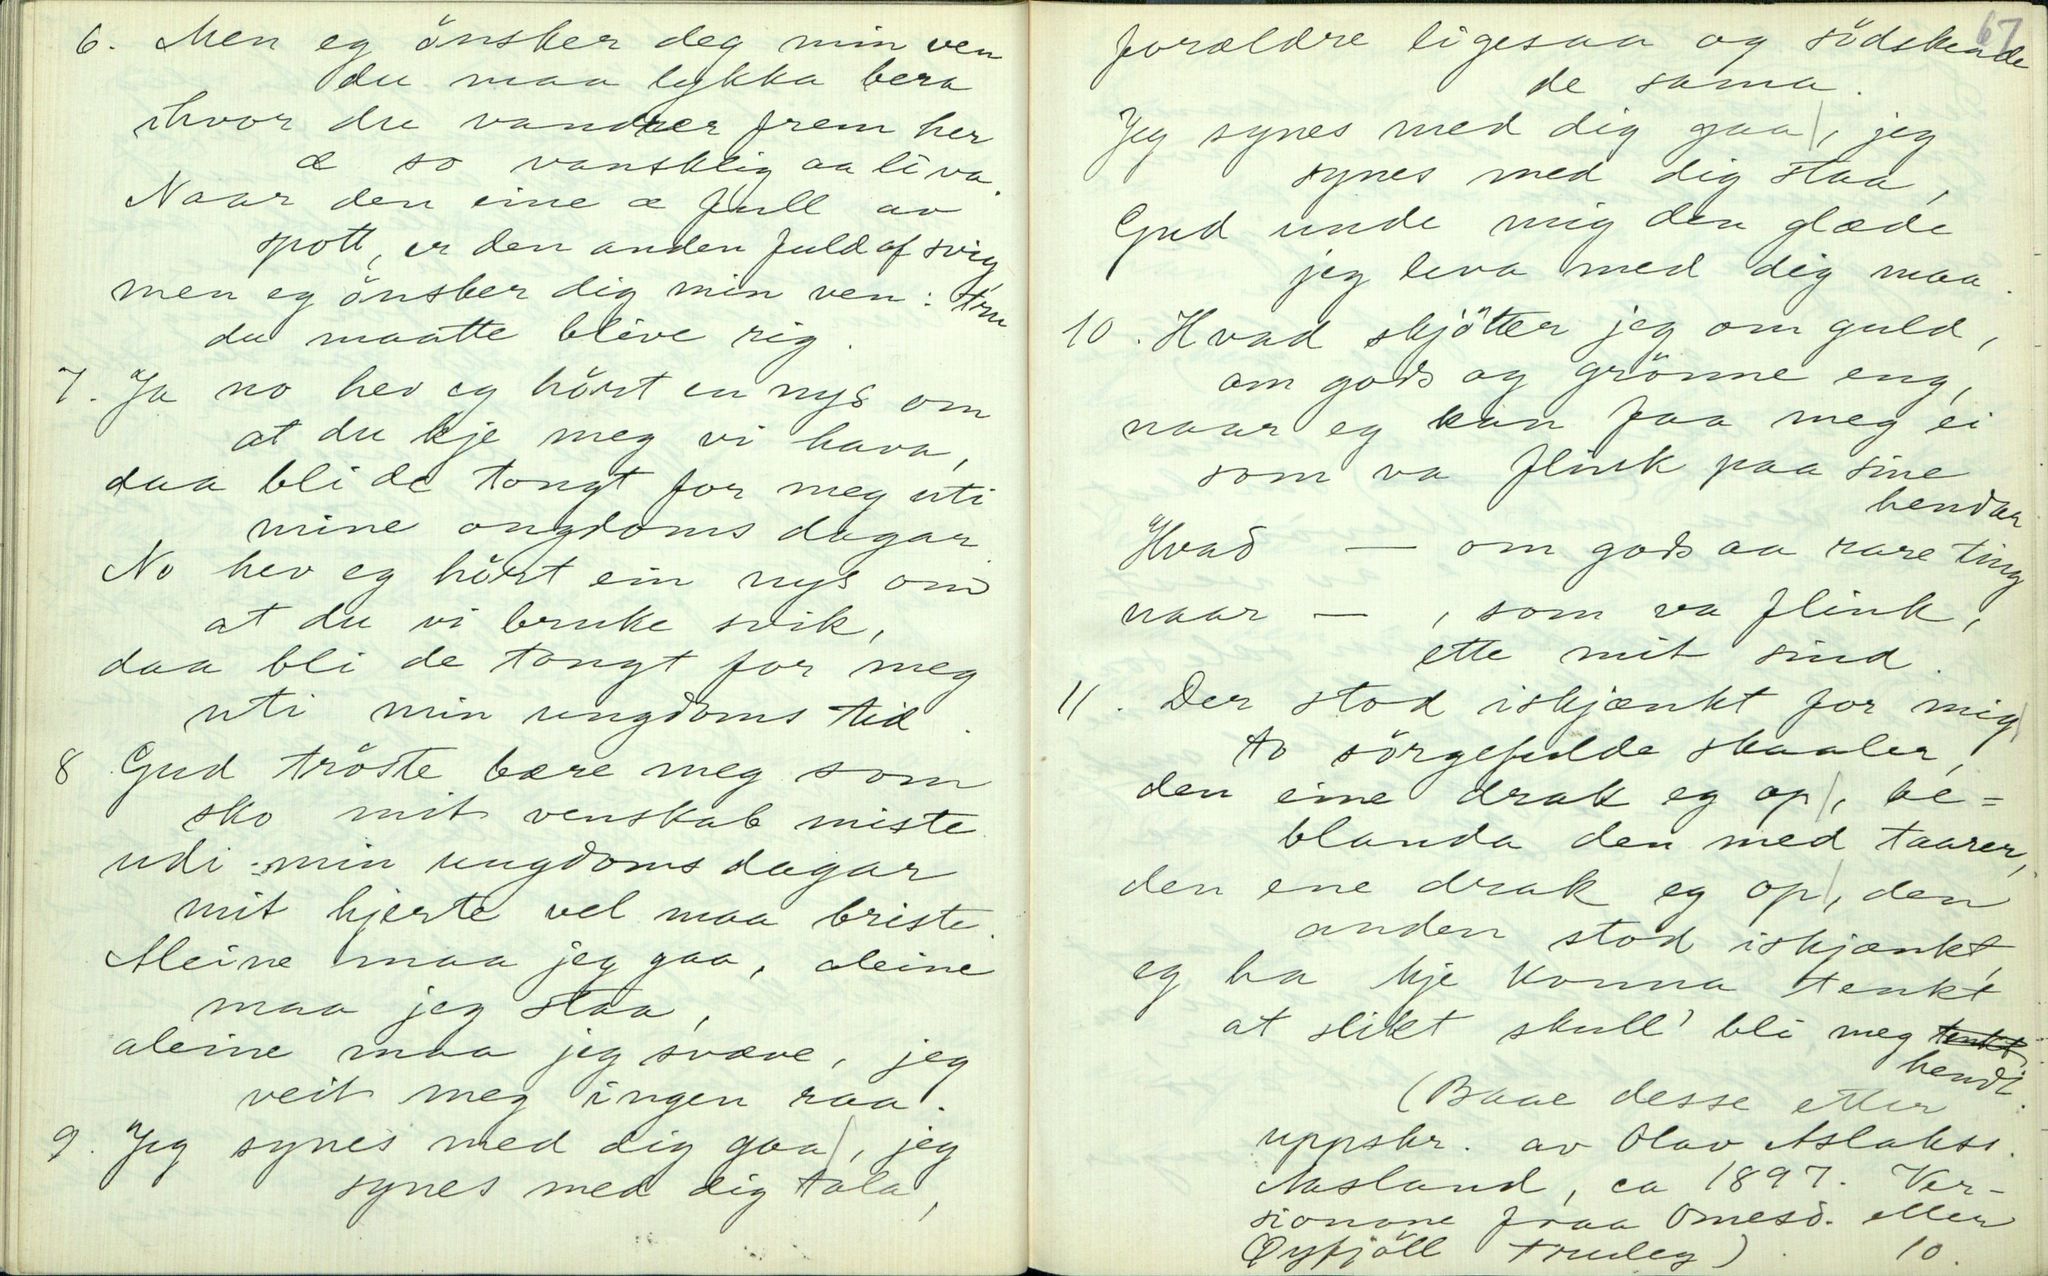 6. Men eg önsker deg min ven
du maa lykka bera
ihvor du vandrer frem her
æ so vansklig aa liva.
Naar den eine æ full av
spott, er den anden fuld af svig,
men eg önsker dig min ven: tru
du maatte blive rig.
7. Ja no hev eg hört en nys om
at du kje meg vi hava,
daa bli de tongt for meg uti
mine ongdoms dagar
No hev eg hört ein nys om
at du vi bruke svik,
daa bli de tongt for meg
uti min ungdoms tid.
8 Gud tröste bære meg som
sko mit venskab miste
udi min ungdoms dagar
mit hjerte vel maa briste.
Aleine maa jeg gaa, aleine
maa jeg staa,
aleine maa jeg svæve, jeg
veit meg ingen raa.
9. Jeg synes med dig gaa, jeg
synes med dig tala,
67
forældre ligesaa og södskende
de sama.
Jeg synes med dig gaa, jeg
synes med dig staa,
Gud unde mig den glæde
jeg leva med dig maa.
10. Hvad skjötter jeg om guld,
om gods og grönne eng,
naar eg kan faa meg ei
som va flink paa sine
hendar
Hvad — om gods aa rare ting
naar — , som va flink,
ette mit sind.
11. Der stod iskjænkt for mig
to sörgefulde skaaler,
den eine drak eg op, be=
blanda den med taarer,
den ene drak eg op, den
anden stod iskjænkt,
eg ha kje konna tenkt
at slikt skull' bli meg tenkt
hendt.
(Baae desse etter
uppskr. av Olav Aslakss.
Aasland, ca 1897. Ver-
sionane fraa Omesd. eller
Öyfjöll truleg)
10.